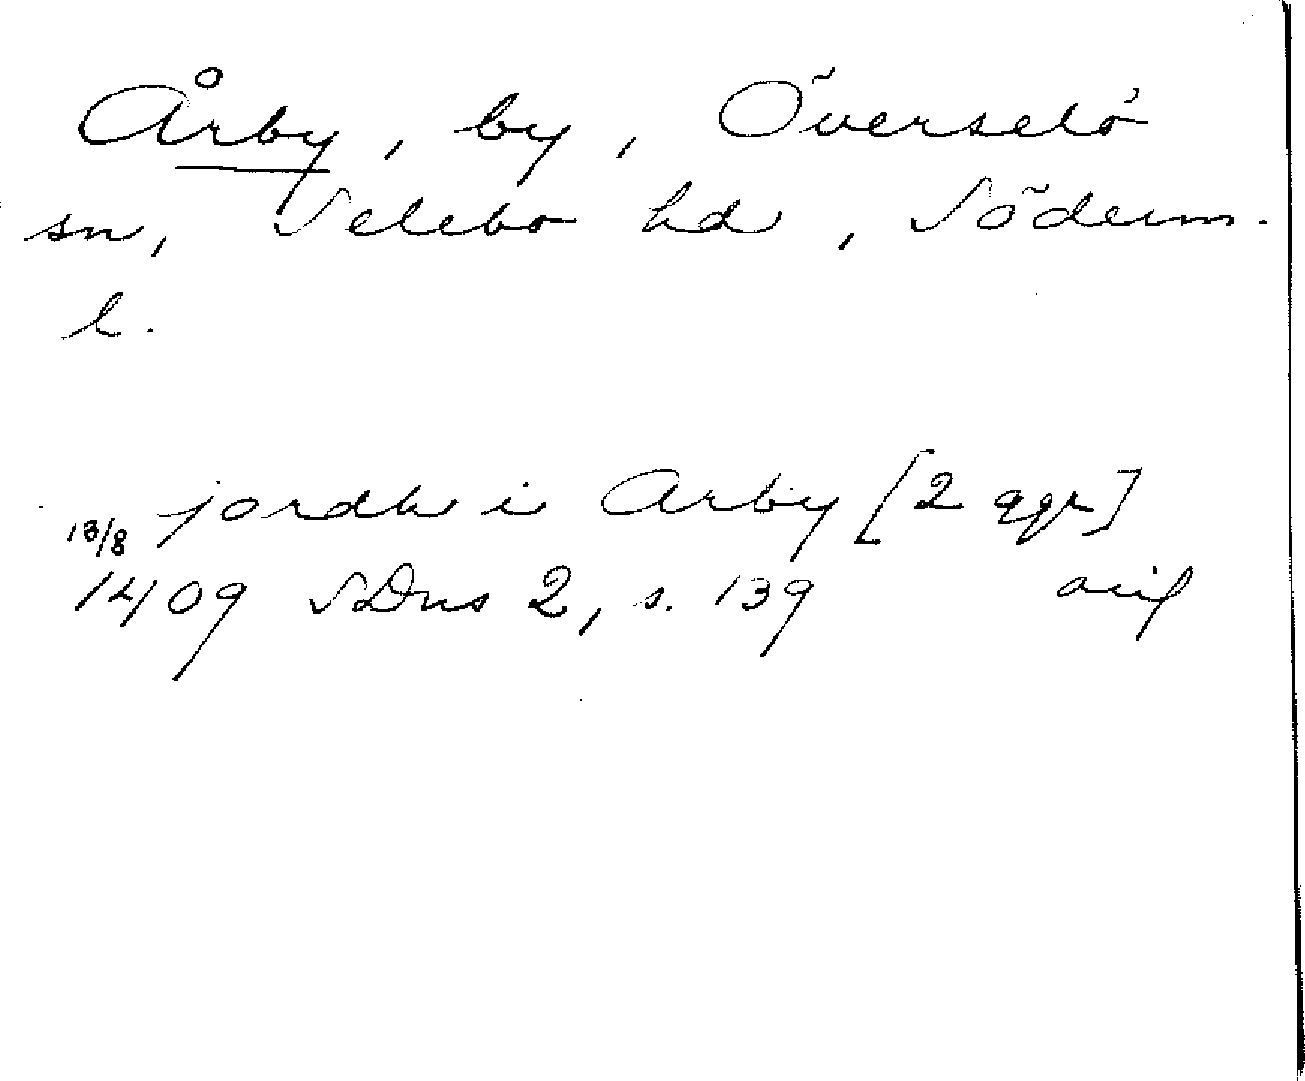 Årby, by, Överselö
sn, Selebo hd, Söderm.
l.
jordh i Arby [2 ggr]
13/8
1409 SDns 2, s. 139 orig